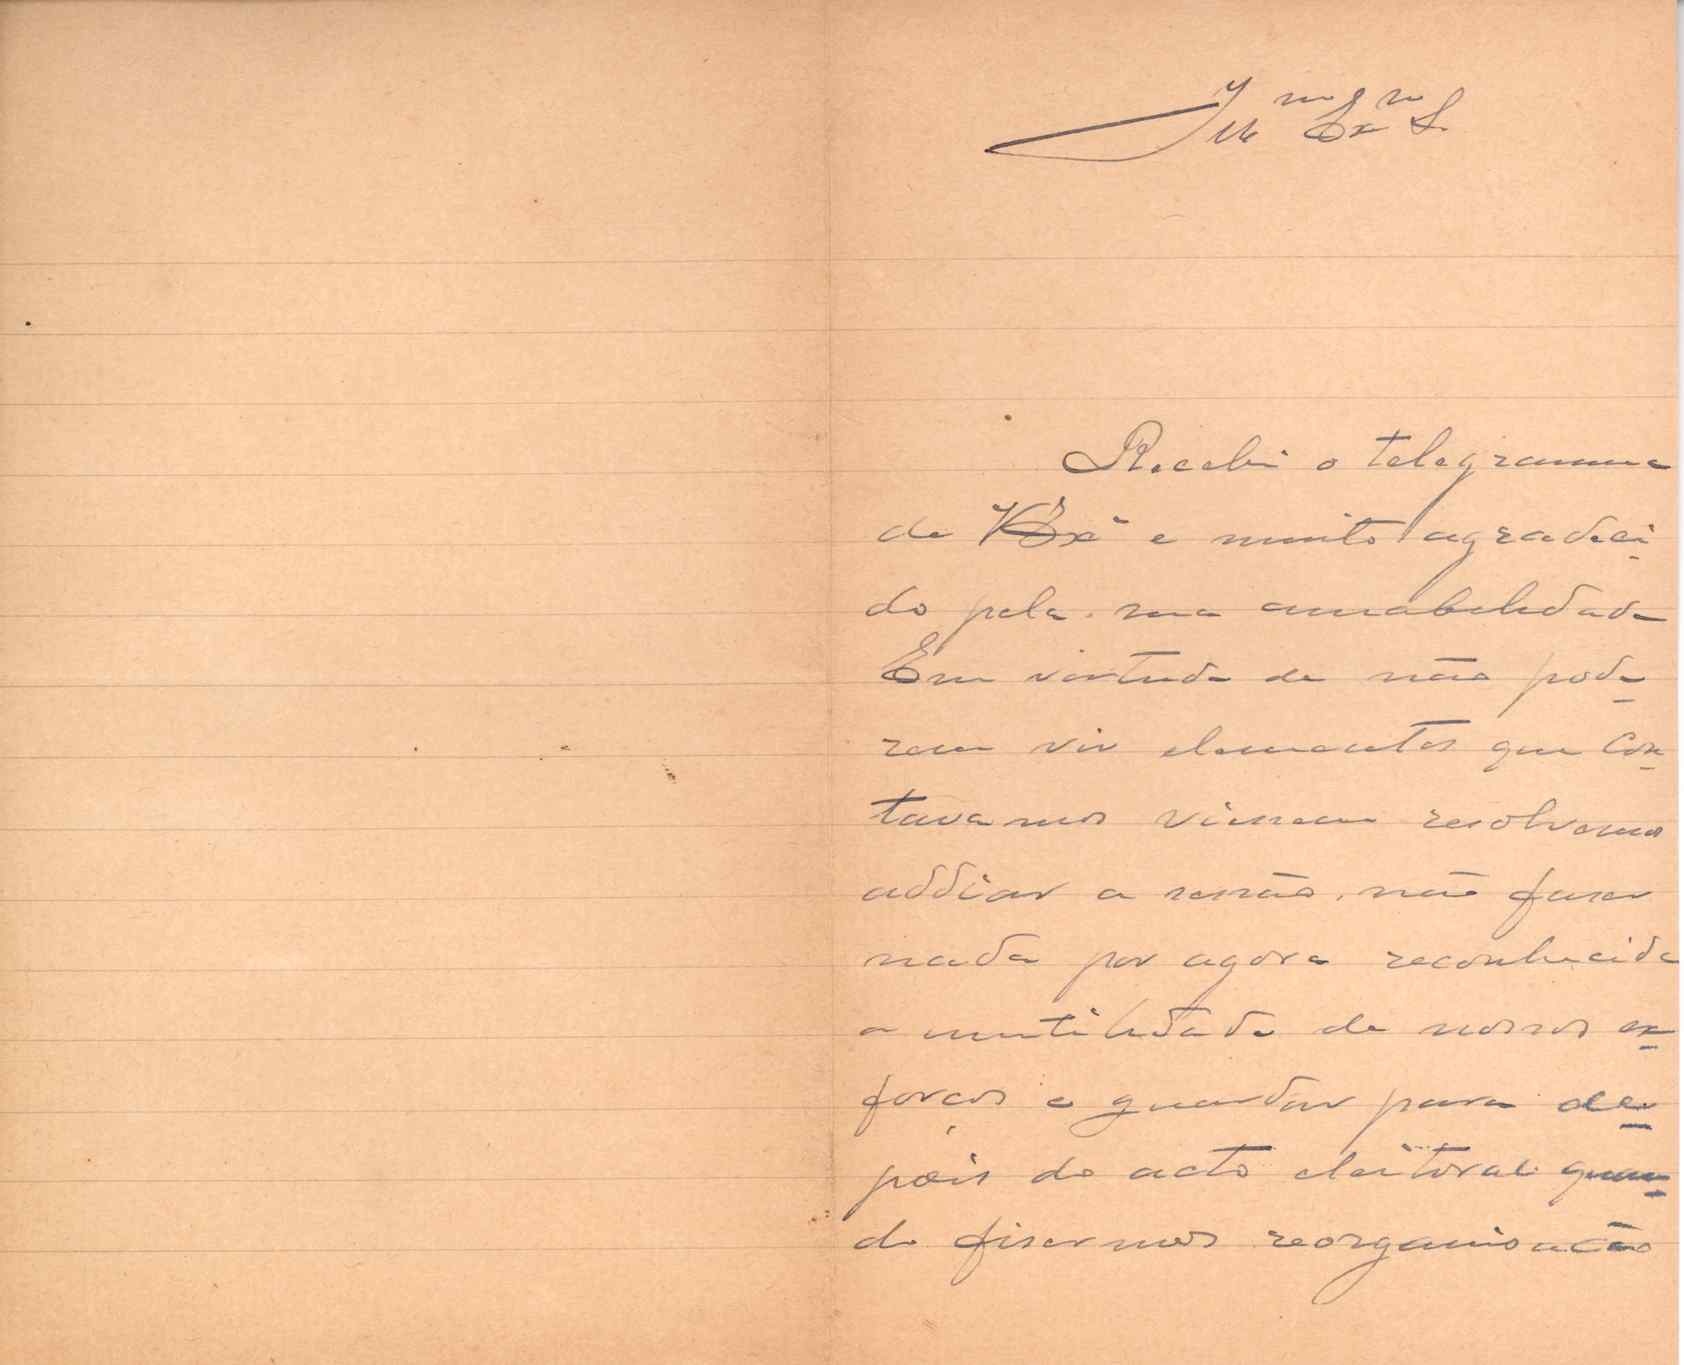 Illmo Exmo Sr
Recebi o telegramma
de V Exª e muito agradeci-
do pela sua amabelidade
Em virtude de não pode-
rem vir elementos que con-
tavamos viessem resolvemos
addiar a sessão, não faser
nada por agora reconhecida
a inutilidade de nossos es-
forços e guardar para de-
pois do acto eleitoral quan-
do fisermos reorganisação